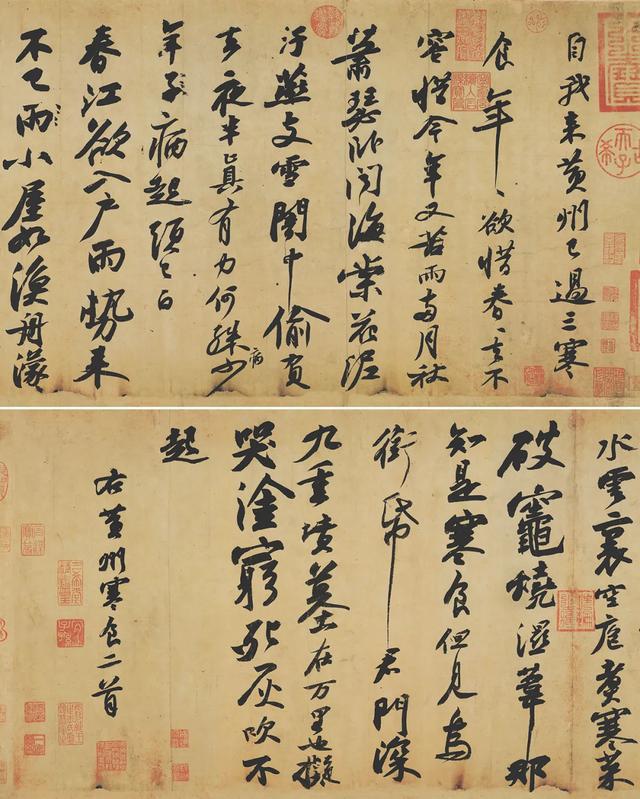 自我来黄州已過三寒
食年〻欲惜春〻去不
容惜今年又苦雨兩月秋
蕭瑟卧聞海棠花泥
汙燕支雪闇中偷負
去夜半真有力何殊少
病
年子病起頭已白
春江欲入戶雨勢来
不已雨小屋如漁舟濛〻
水雲裏空庖煮寒菜
破竈燒濕葦那
知是寒食但見烏
銜帋君門深
九重墳墓在万里也擬
哭塗窮死灰吹不
起
右黄州寒食二首